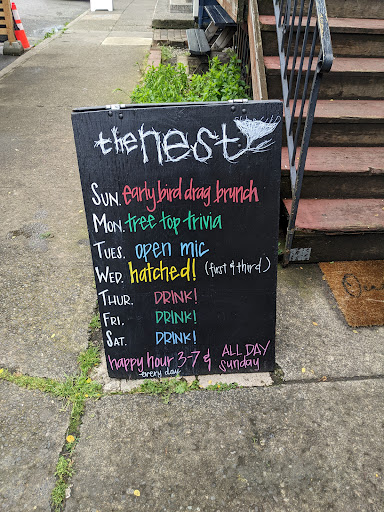 the nest
SUN. early bird drag brunch
MON. tree top trivia
TUES. open mic
WED. hatched! (first & third)
THUR. DRINK!
FRI. DRINK!
SAT. DRINK!
happy hour 3-7 & ALL DAY
every day sunday